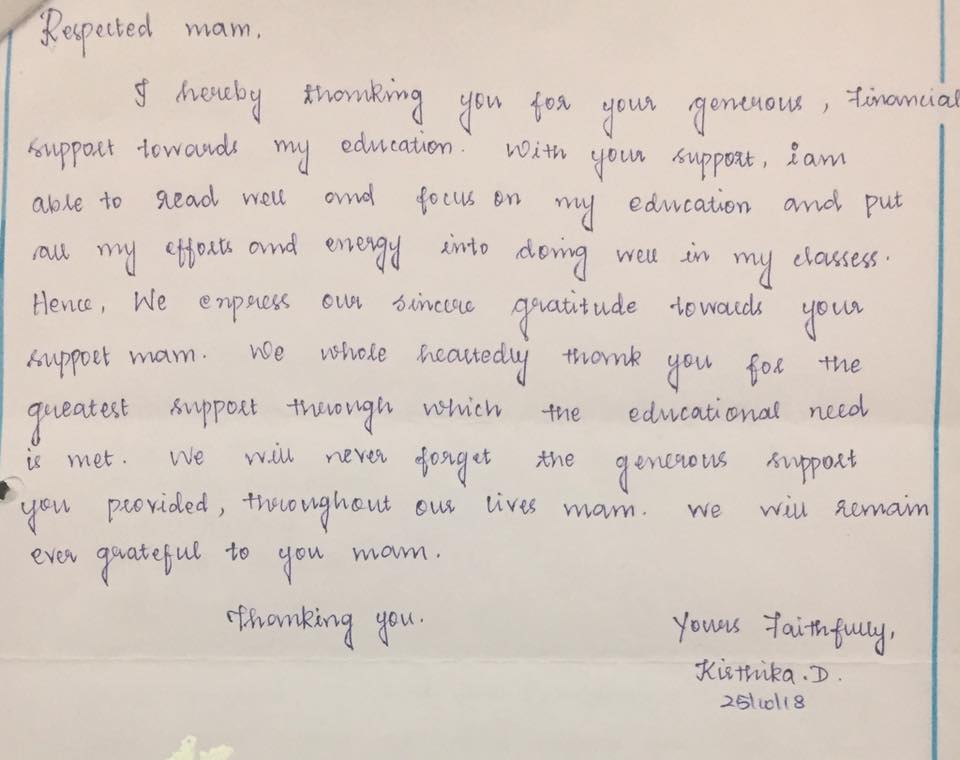 Respected mam,
I hereby thanking you for your generous, Financial
support towards my education. With your support, i am
able to read well and focus on my education and put
all my efforts and energy into doing well in my classess.
Hence, We express our sincere gratitude towards your
support mam. We whole heartedly thank you for the
greatest support through which the educational need
is met. We will never forget the generous support
you provided, throughout our lives mam. We will remain
ever grateful to you mam.
Thanking you.
Yours Faithfully,
Kirthika.D.
25/10/18